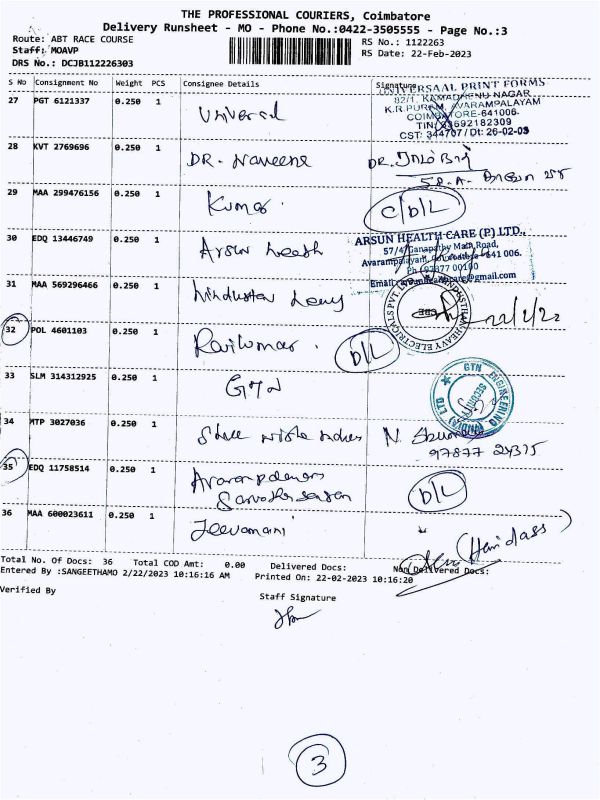 THE PROFESSIONAL COURIERS, Coimbatore
Delivery Runsheet - MO - Phone No.:0422-3505555 - Page No.:3
Route: ABT RACE COURSE
RS No.: 1122263
Staff: MOAVP
RS Date: 22-Feb-2023
DRS No.: DCJB112226303
S No Consignment No Weight PCS Consignee Details Signature
27 PGT 6121337 0.250 1 Universal
UNIVERSAAL PRINT FORMS
82/1, KAMADHENU NAGAR
K.R.PURAM, AVARAMPALAYAM
COIMBATORE-641006.
TIN: 33692182309
CST: 344707 / Dt: 26-02-03
28 KVT 2769696 0.250 1 DR. Naveena DR.
29 MAA 299476156 0.250 1 Kumar. C/D/L
30 EDQ 13446749 0.250 1 Arsun heath
ARSUN HEALTH CARE (P) LTD.,
57/4, Ganapathy Main Road,
Avarampalayam, Coimbatore - 641 006.
Ph : 97877 00100
31 MAA 569296466 0.250 1 hindustan heavy 22/2/22
HINDUSTHAN HEAVY ELECTRICALS PVT. LTD
CBE
32 POL 4601103 0.250 1 Ravikumar. D/L
33 SLM 314312925 0.250 1 GTN
GTN ENGINEERING (INDIA) LTD
SECURITY
34 MTP 3027036 0.250 1 Shree N.
97877 24375
35 EDQ 11758514 0.250 1 D/L
36 MAA 600023611 0.250 1 Jeevamani (Haridass)
Total No. Of Docs: 36 Total COD Amt: 0.00 Delivered Docs: Non Delivered Docs:
Entered By :SANGEETHAMO 2/22/2023 10:16:16 AM Printed On: 22-02-2023 10:16:20
Verified By
Staff Signature
3